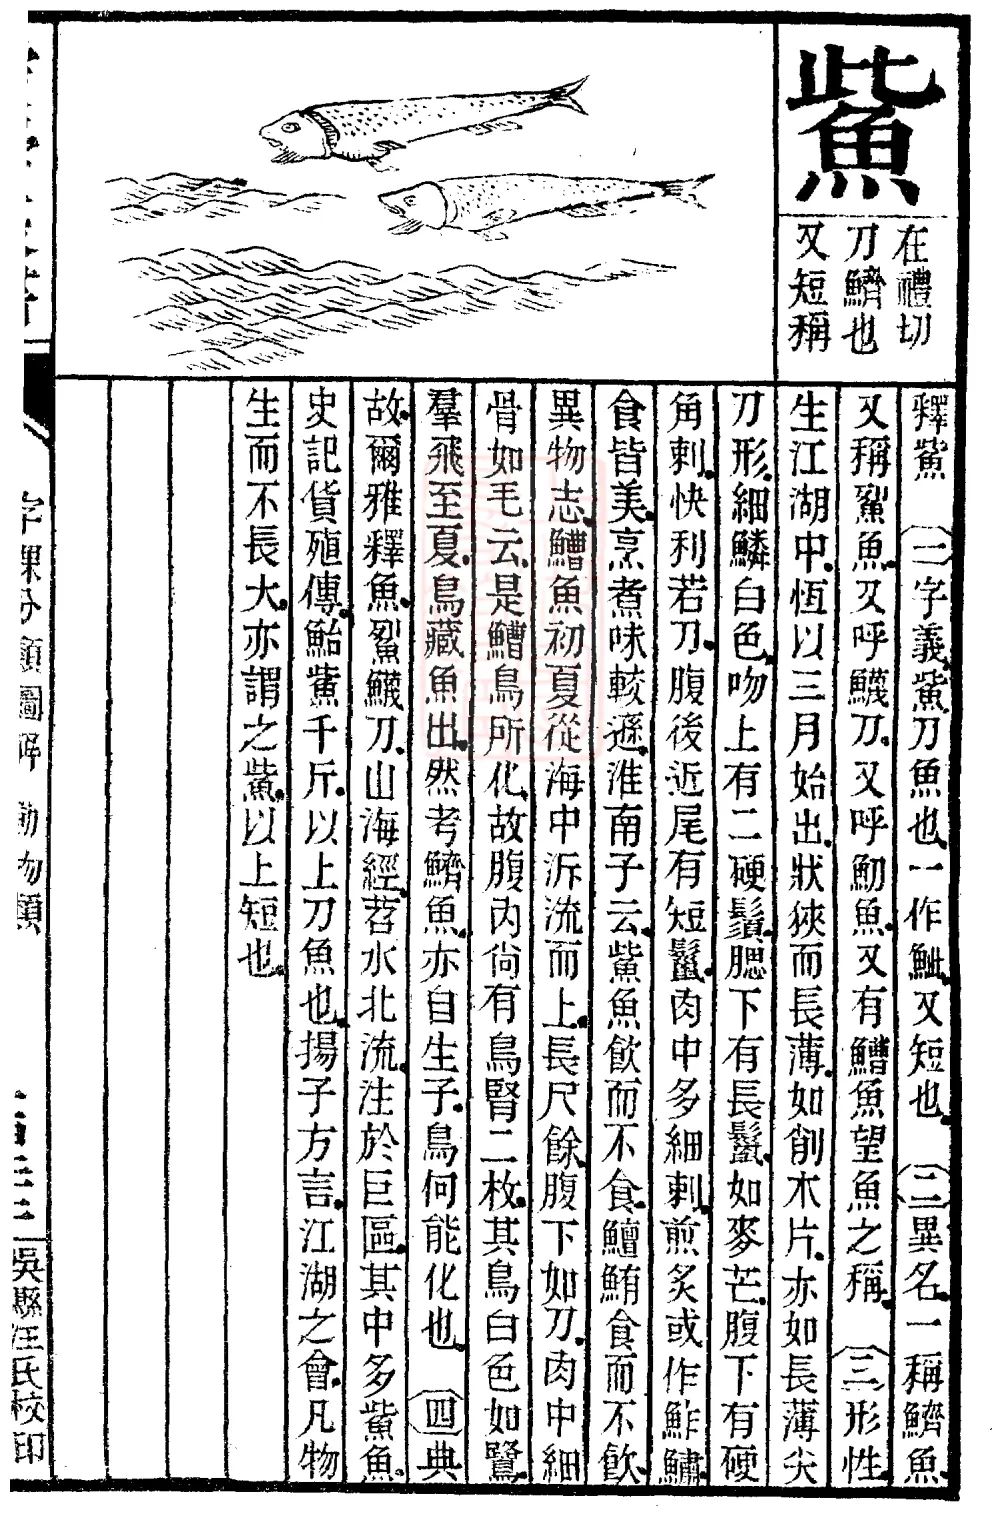 鮆
在禮切
刀鱭也
又短稱
釋鮆　㈠字義、鮆刀魚也、一作鮆、又短也、㈡異名、一稱鱭魚、
又稱鮤魚、又呼鱴刀、又呼魛魚、又有鰽魚望魚之稱、㈢形性、
生江湖中、恆以三月始出、狀狹而長薄、如削木片、亦如長薄尖
刀形、細鱗白色、吻上有二硬鬚、腮下有長鬣、如麥芒、腹下有硬
角刺、快利若刀、腹後近尾有短鬣、肉中多細刺、煎炙或作鮓鱐、
食皆美、烹煮味較遜、淮南子云、鮆魚飲而不食、鱣鮪食而不飲、
異物志、鰽魚初夏從海中泝流而上、長尺餘、腹下如刀、肉中細
骨如毛云、是鰽鳥所化、故腹內尙有鳥腎二枚、其鳥白色如鷺、
羣飛至夏、鳥藏魚出、然考鱭魚、亦自生子、鳥何能化也、㈣典
故、爾雅釋魚、鮤鱴刀、山海經、苕水北流、注於巨區、其中多鮆魚、
史記貨殖傳、鮐鮆千斤、以上刀魚也、揚子方言、江湖之會、凡物
生而不長大、亦謂之鮆、以上短也、
字課分類圖解　動物類
吳縣汪氏校印